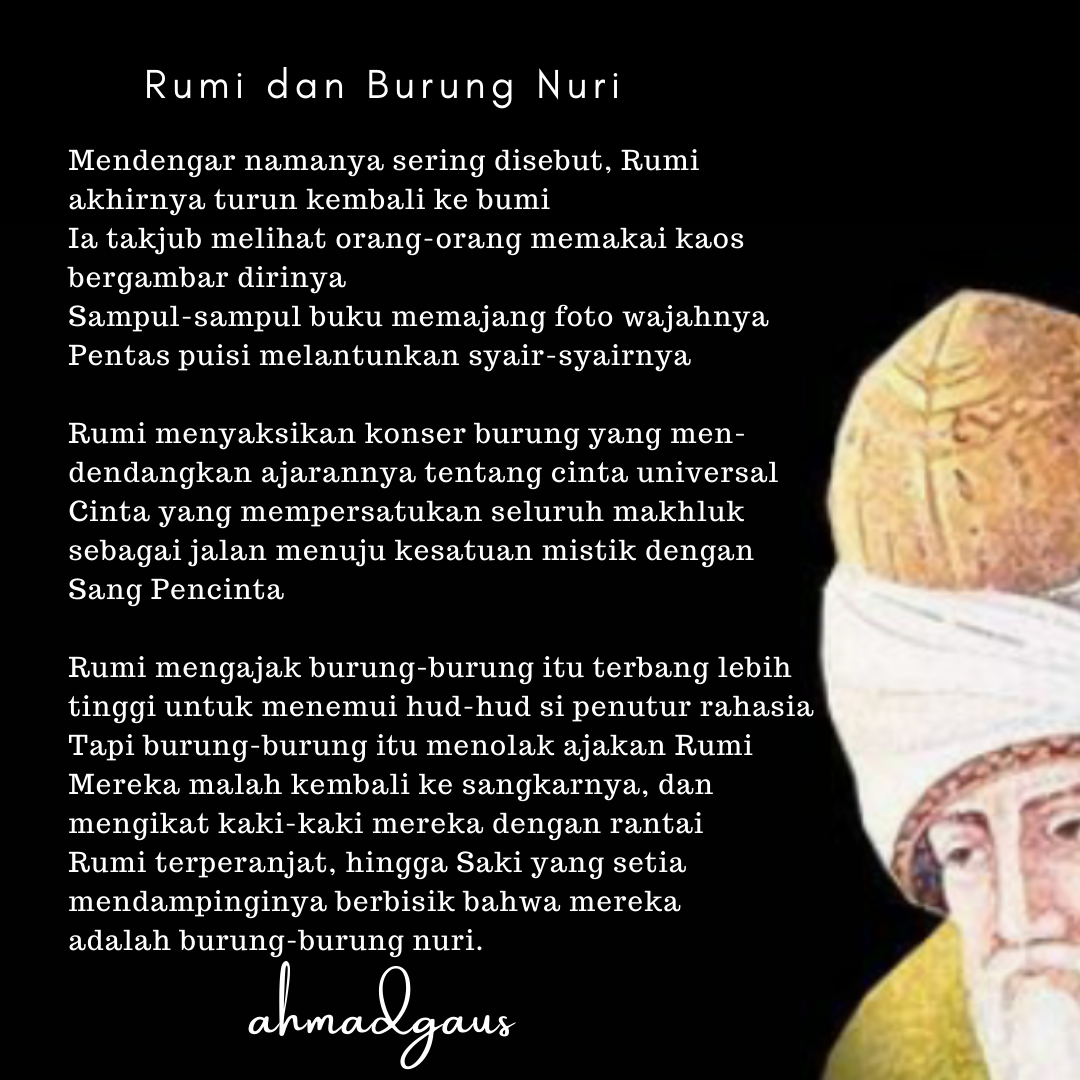 Rumi dan Burung Nuri
Mendengar namanya sering disebut, Rumi
akhirnya turun kembali ke bumi
Ia takjub melihat orang-orang memakai kaos
bergambar dirinya
Sampul-sampul buku memajang foto wajahnya
Pentas puisi melantunkan syair-syairnya
Rumi menyaksikan konser burung yang men-
dendangkan ajarannya tentang cinta universal
Cinta yang mempersatukan seluruh makhluk
sebagai jalan menuju kesatuan mistik dengan
Sang Pencinta
Rumi mengajak burung-burung itu terbang lebih
tinggi untuk menemui hud-hud si penutur rahasia
Tapi burung-burung itu menolak ajakan Rumi
Mereka malah kembali ke sangkarnya, dan
mengikat kaki-kaki mereka dengan rantai
Rumi terperanjat, hingga Saki yang setia
mendampinginya berbisik bahwa mereka
adalah burung-burung nuri.
ahmadgaus